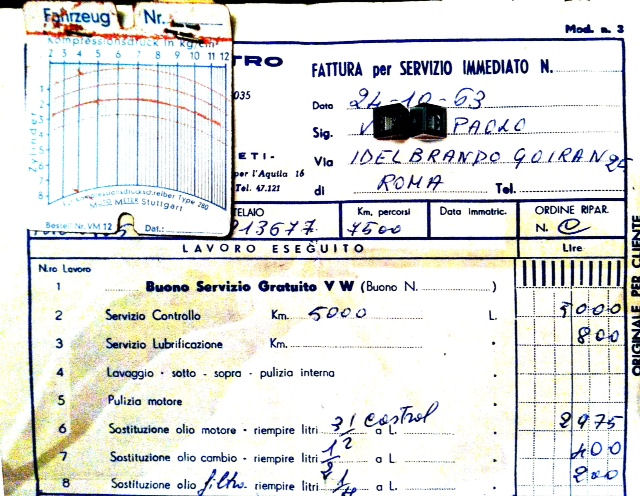 Fahrzeug Nr.
Kompressionsdruck in kg/cm²
2 3 4 5 6 7 8 9 10 11 12
Zylinder
1
2
3
4
5
6
7
8
Kompressionsdruckschreiber Type 280
MOTO METER Stuttgart
Bestell Nr. VM 12 Dat.:
Mod. n. 3
TRO
FATTURA per SERVIZIO IMMEDIATO N.
035
Data 24-10-63
Sig. PAOLO
ETI-
per l'Aquila 16
Via IDELBRANDO GOIRAN 25
Tel. 47.121
di ROMA Tel.
TELAIO
213677
Km. percorsi
7500
Data immatric.
ORDINE RIPAR.
N.
LAVORO ESEGUITO
Lire
N.ro Lavoro
1 Buono Servizio Gratuito VW (Buono N. )
2 Servizio Controllo Km. 5000 L. 5000
3 Servizio Lubrificazione Km. 800
4 Lavaggio - sotto - sopra - pulizia interna
5 Pulizia motore
6 Sostituzione olio motore - riempire litri 3 1/2 castrol a L. 2975
7 Sostituzione olio cambio - riempire litri 1/2 a L. 400
8 Sostituzione olio filtro riempire litri 1/4 a L. 200
ORIGINALE PER CLIENTE